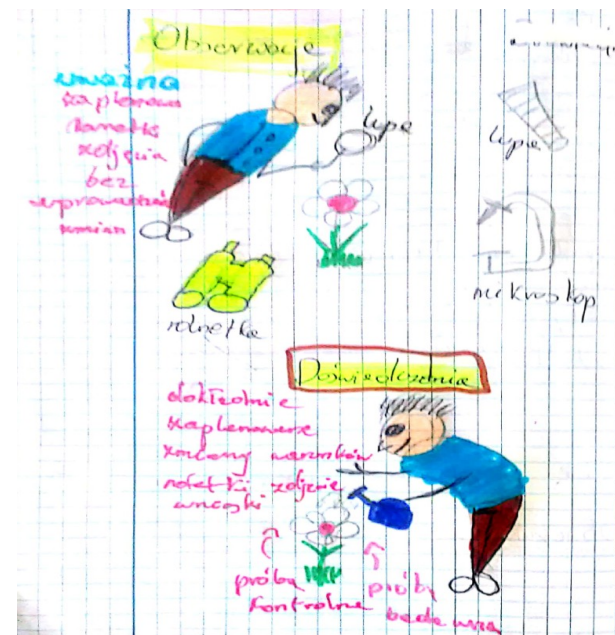 Obserwacje
uważna
zaplanowa
notatki
zdjęcia
bez
wprowadzeń
zmian
lupa
lupa
lornetka
mikroskop
Doświadczenia
dokładnie
zaplanowane
zmiany warunków
notatki zdjęcie
wnioski
próba
kontrolna
próba
badawcza